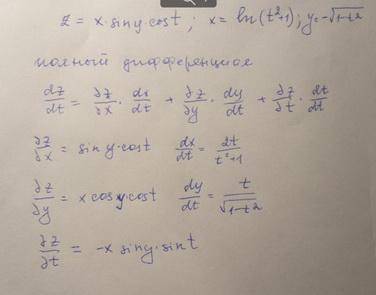 z = x·siny·cost ; x = ln(t²+1); y = -√1-t²
полный дифференциал
dz/dt = ∂z/∂x · dx/dt + ∂z/∂y · dy/dt + ∂z/∂t · dt/dt
∂z/∂x = siny·cost dx/dt = 2t/t²+1
∂z/∂y = x cosy·cost dy/dt = t/√1-t²
∂z/∂t = -x siny·sint